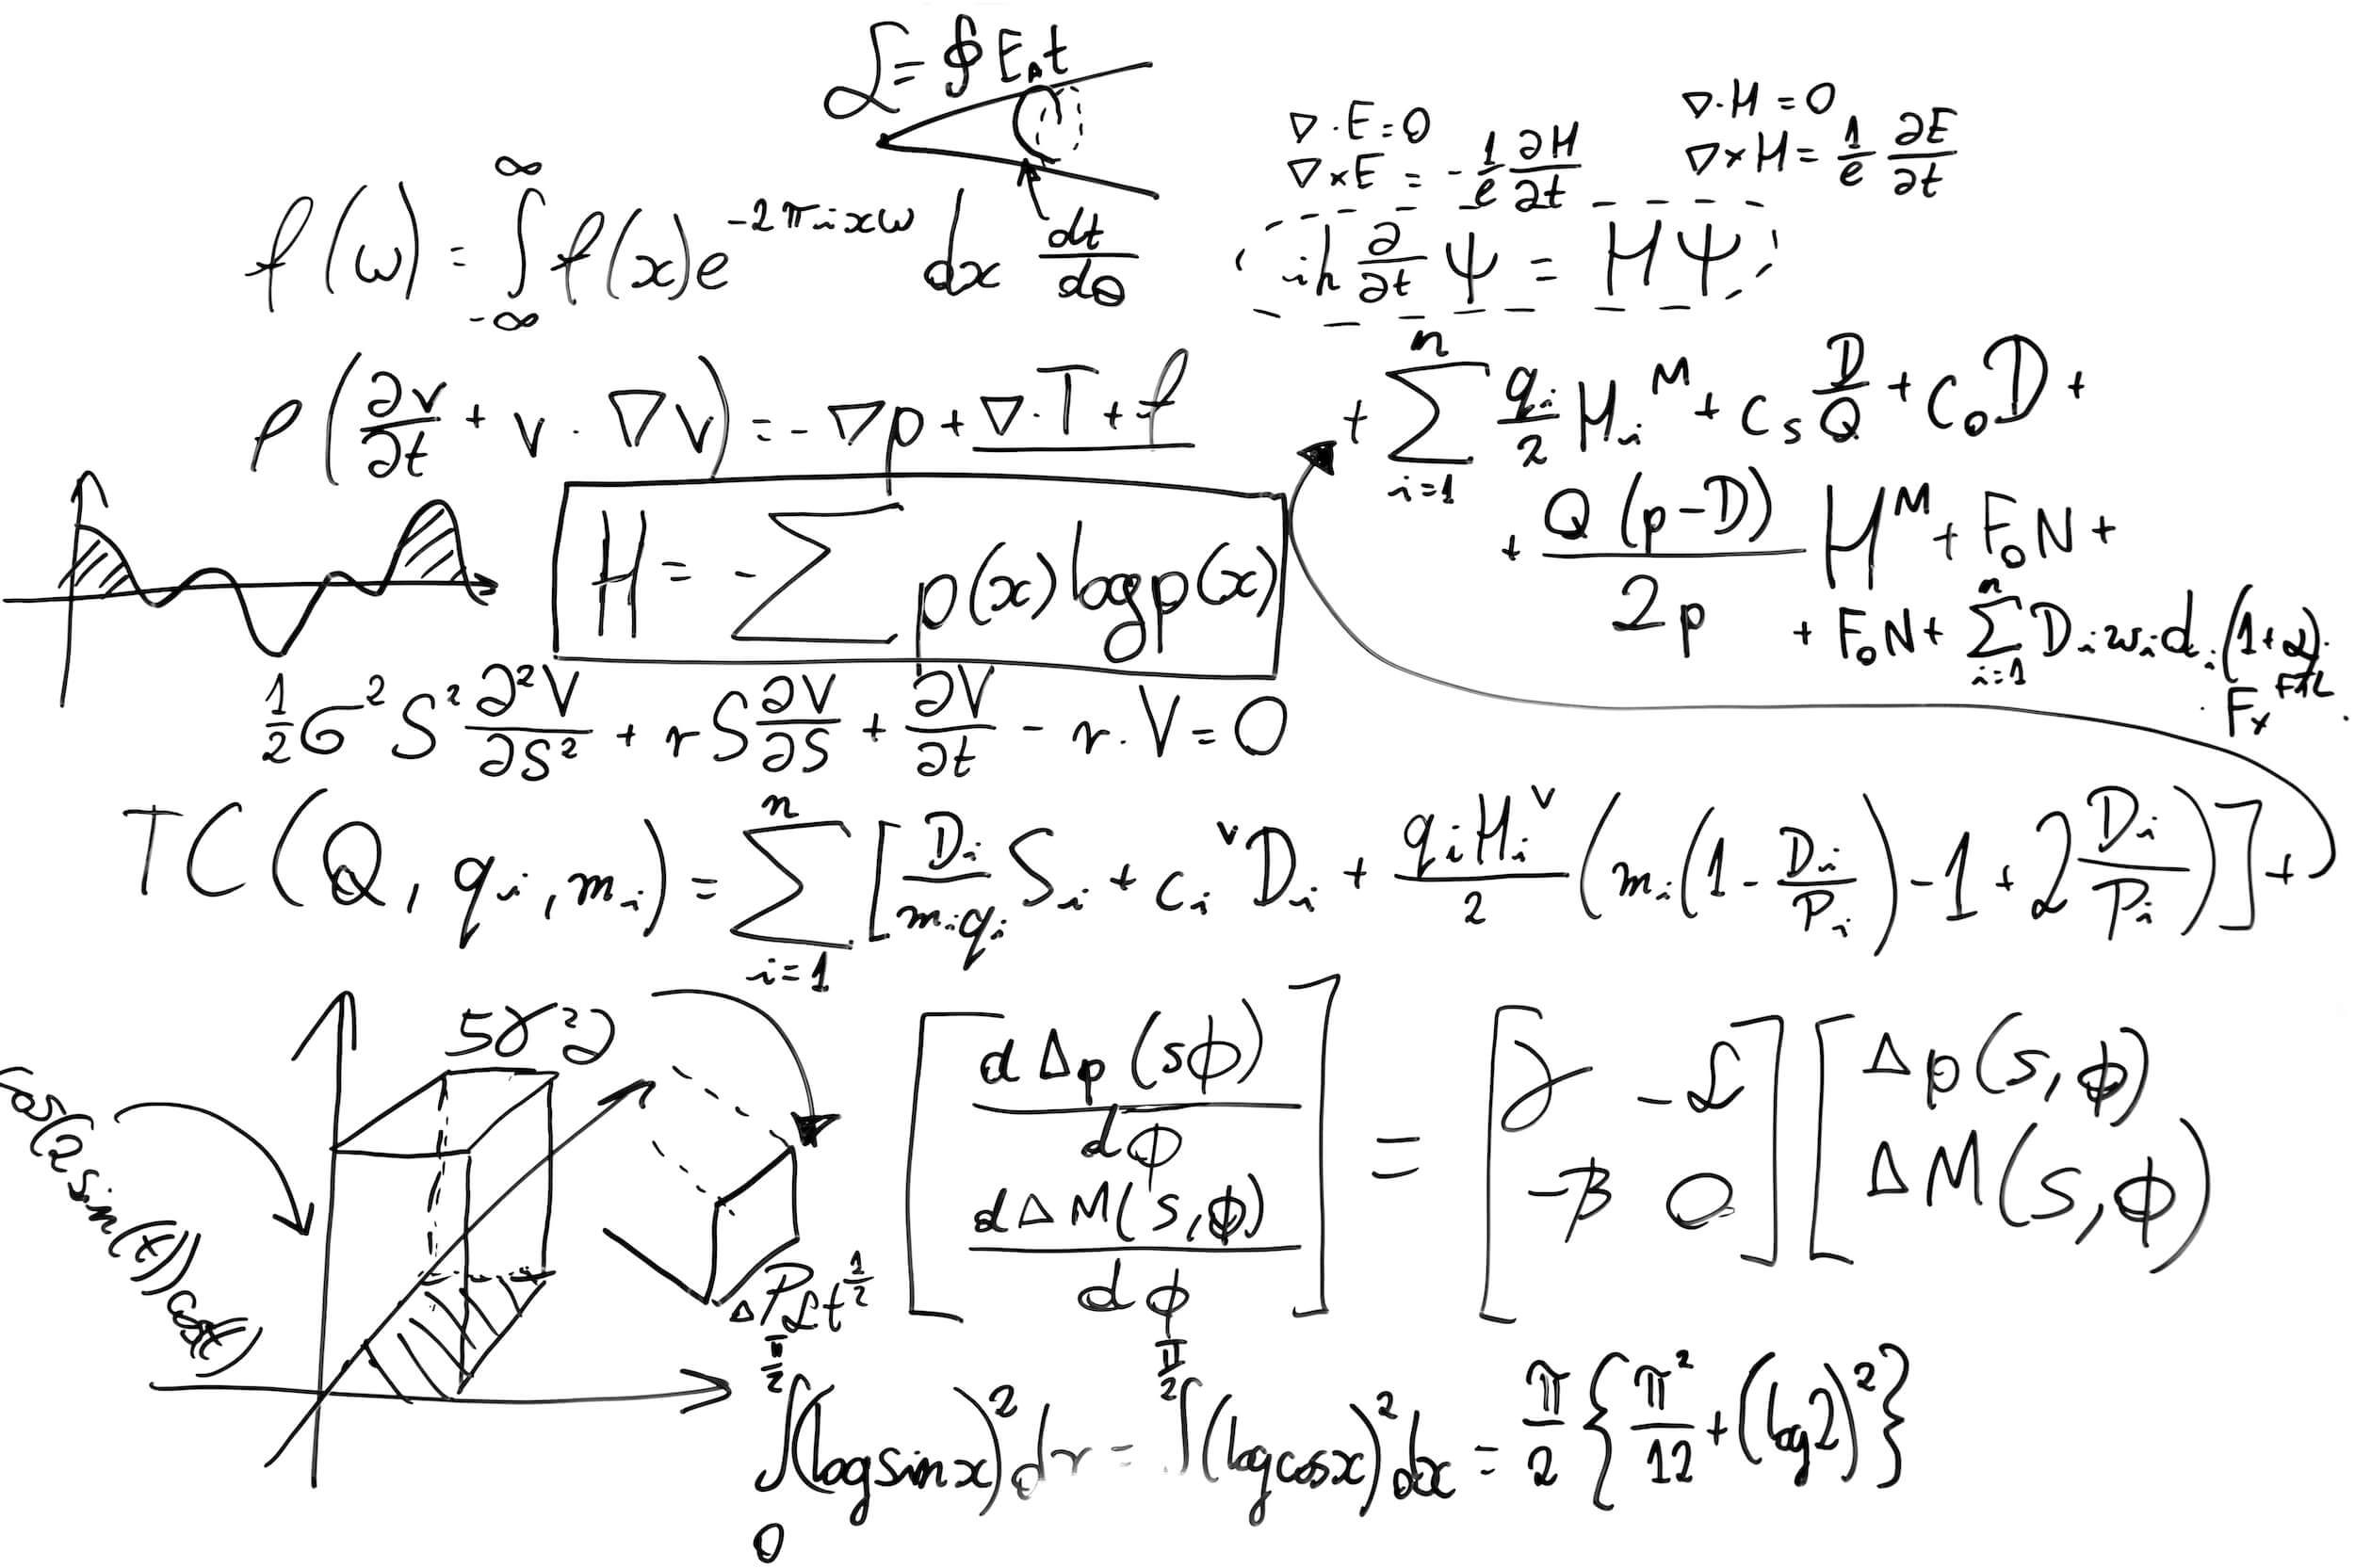 ℒ = ∮ E.t
∇·E=0
∇×E = -1/e ∂H/∂t
∇·H=0
∇×H = 1/e ∂E/∂t
f(ω) = ∫_{-∞}^{∞} f(x)e^{-2πixω} dx dt/dθ
iħ ∂/∂t Ψ = HΨ
ρ(∂v/∂t + v·∇v) = -∇p + ∇·T + f
+ Σ_{i=1}^{n} q_i/2 H_i^M + c_s D/Q + c_o D +
+ Q(p-D)/2p H^M + F_o N +
+ F_o N + Σ_{i=1}^{n} D_i w_i d_i (1+
F_x
H = -Σ p(x) log p(x)
1/2 σ² S² ∂²V/∂S² + rS ∂V/∂S + ∂V/∂t - r.V = 0
TC(Q, q_i, m_i) = Σ_{i=1}^{n} [D_i/(m_i q_i) S_i + c_i^v D_i + q_i H_i^v/2 (m_i(1 - D_i/P_i) - 1 + 2 D_i/P_i)] +
5γ²
[d Δp(sϕ)/dϕ
d ΔM(s,ϕ)/dϕ] = [γ -ℒ
-β 0] [Δp(s,ϕ)
ΔM(s,ϕ)
sin(x))
ΔPℒt^{1/2}
∫_0^{π/2} (log sin x)² dx = ∫^{π/2} (log cos x)² dx = π/2 {π²/12 + (log 2)²}